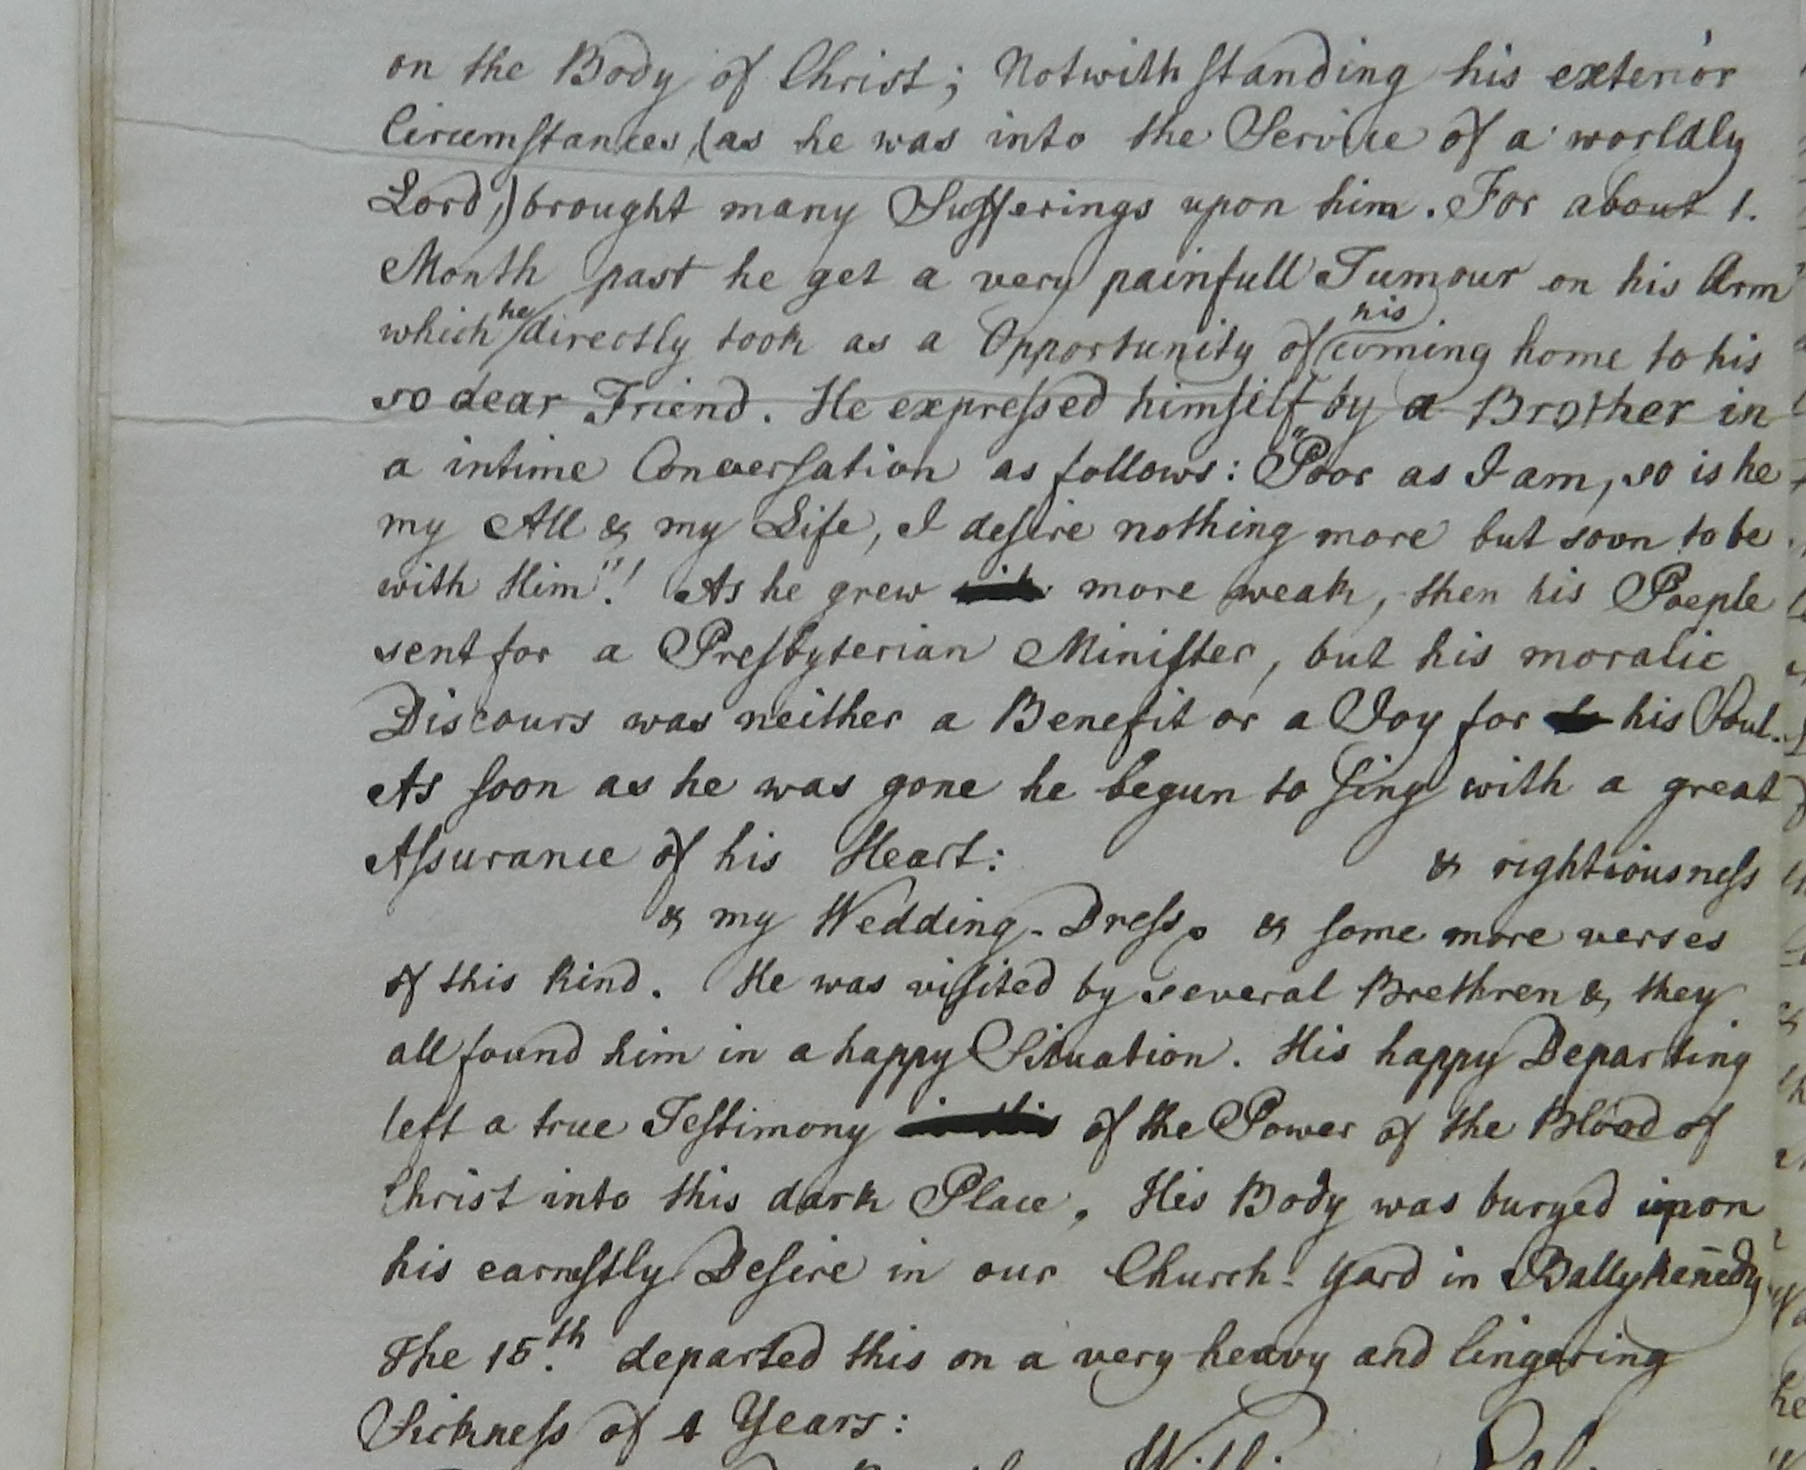 on the Body of Christ; Notwithstanding his exterior
Circumstances, (as he was into the Service of a worldly
Lord,) brought many Sufferings upon him. For about 1.
Month past he get a very painfull Tumour on his Arm
which he directly took as a Opportunity of his coming home to his
so dear Friend. He expressed himself by a Brother in
a intime Conversation as follows: "Poor as I am, so is he
my All & my Life, I desire nothing more but soon to be
with Him"! As he grew more weak, then his Poeple
sent for a Presbyterian Minister, but his moralic
Discours was neither a Benefit or a Joy for his Soul.
As soon as he was gone he begun to sing with a great
Assurance of his Heart: & rightiousness
& my Wedding-Dress. & some more verses
of this kind. He was visited by several Brethren & they
all found him in a happy Situation. His happy Departing
left a true Testimony of the Power of the Blood of
Christ into this dark Place. His Body was buryed upon
his earnestly Desire in our Church-Yard in Ballykenedy
The 15.th departed this on a very heavy and lingering
Sickness of 4 Years: